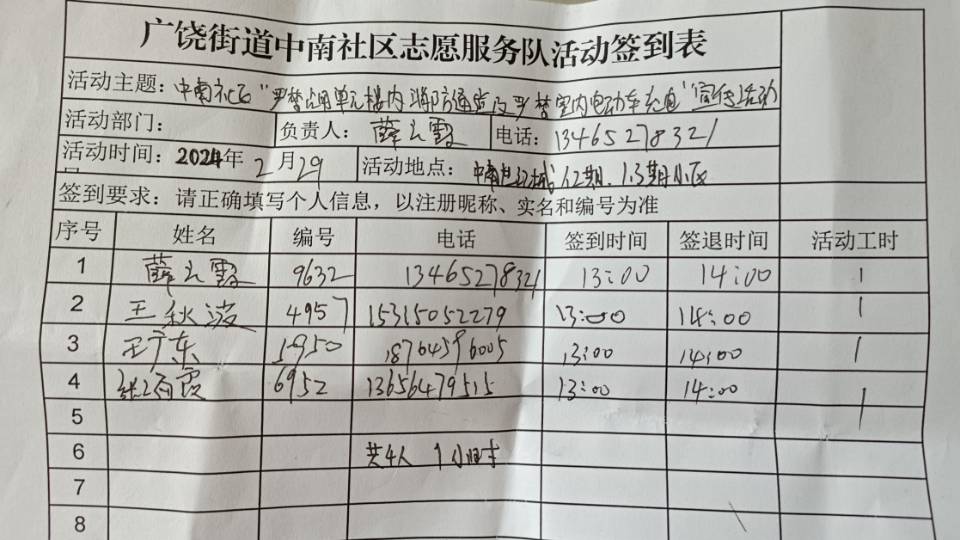 广饶街道中南社区志愿服务队活动签到表
活动主题：中南社区"严禁占用单元楼内消防通道及严禁室内电动车充电"宣传活动
活动部门： 负责人：薛云霞 电话：13465278321
活动时间：2024年2月29 活动地点：中南世纪城1.2期、1.3期小区
日
签到要求：请正确填写个人信息，以注册昵称、实名和编号为准
序号 姓名 编号 电话 签到时间 签退时间 活动工时
1 薛云霞 9632 13465278321 13:00 14:00 1
2 王秋波 4957 15315052279 13:00 14:00 1
3 王广东 5950 18764596005 13:00 14:00 1
4 张雨霞 6952 13656479515 13:00 14:00 1
5
6 共4人 1小时
7
8